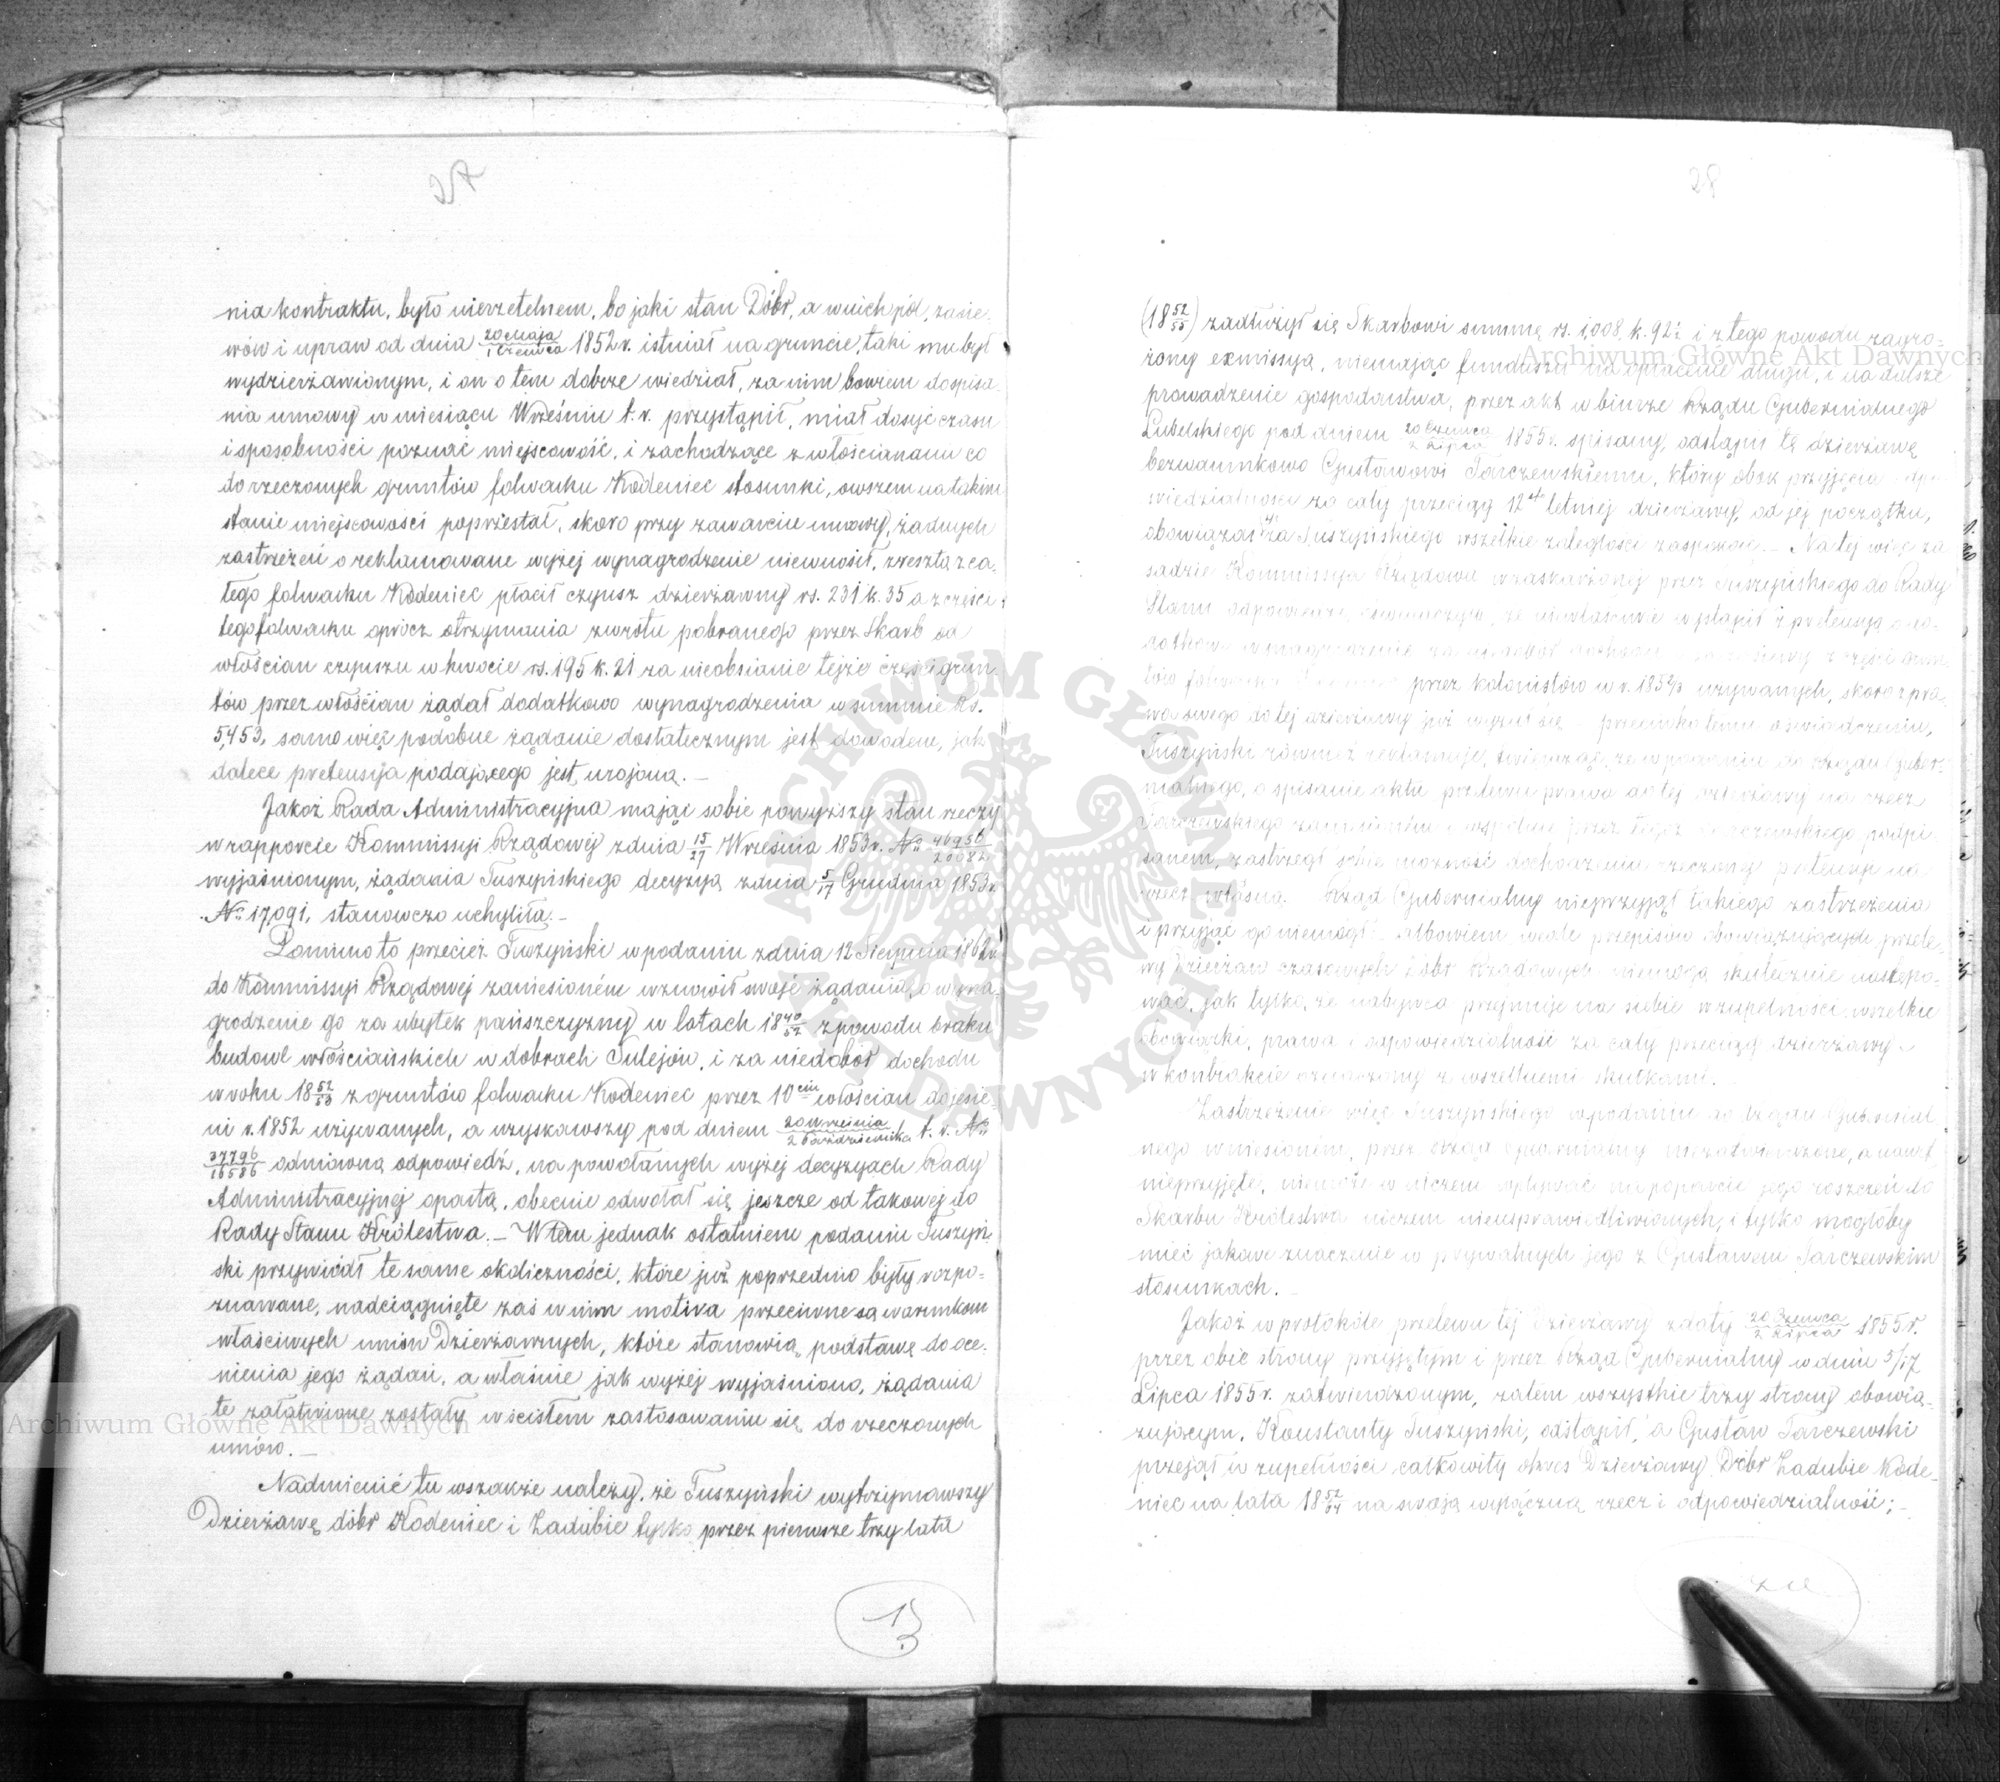 27
nia kontraktu, było nierzetelnem, bo jaki stan Dóbr, a w nich pól, zasie-
wów i upraw od dnia 20 Maja/1 Czerwca 1852 r. istniał na gruncie, taki mu był
wydzierżawionym, i on o tem dobrze wiedział, za nim bowiem do spisa-
nia umowy w miesiącu Wrześniu t. r. przystąpił, miał dosyć czasu
i sposobności poznać miejscowość, i zachodzące z włościanami co
do rzeczonych gruntów folwarku Kodeniec stosunki, owszem na takim
stanie miejscowości poprzestał, skoro przy zawarciu umowy, żadnych
zastrzeżeń o reklamowane wyżej wynagrodzenie niewnosił, zresztą z ca-
łego folwarku Kodeniec płacił czynsz dzierżawny rs. 231 k. 35 a z części
tego folwarku oprócz otrzymania zwrotu pobranego przez Skarb od
włościan czynszu w kwocie rs. 195 k. 21 za nieobsianie tejże części grun-
tów przez włościan żądał dodatkowo wynagrodzenia w summie Rs.
5,453, samo więc podobne żądanie dostatecznym jest dowodem, jak
dalece pretensija podającego jest urojoną. —
Jakoż Rada Administracyjna mając sobie powyższy stan rzeczy
w rapporcie Kommissyi Rządowej z dnia 15/27 Września 1853 r. No 46956/20082
wyjaśnionym, żądania Tuszyńskiego decyzyą z dnia 5/17 Grudnia 1853 r.
No 17091, stanowczo uchyliła. —
Pomimo to przecież Tuszyński w podaniu z dnia 12 Sierpnia 1862 r.
do Kommissyi Rządowej zaniesioném wznowił swoje żądania, o wyna-
grodzenie go za ubytek pańszczyzny w latach 18 40/52 z powodu braku
budowl włościańskich w dobrach Sulejów, i za niedobór dochodu
w roku 18 52/53 z gruntów folwarku Kodeniec przez 10ciu włościan do jesie-
ni r. 1852 używanych, a uzyskawszy pod dniem 20 Września/2 Października t. r. No
37796/16586 odmowną odpowiedź, na powołanych wyżej decyzyach Rady
Administracyjnej opartą, obecnie odwołał się jeszcze od takowej do
Rady Stanu Królestwa. — W tém jednak ostatniem podaniu Tuszyń-
ski przywiódł te same okoliczności, które już poprzednio były rozpo-
znawane, nadciągnięte zaś w nim motiva przeciwne są warunkom
właściwych umów Dzierżawnych, które stanowią podstawę do oce-
nienia jego żądań, a właśnie jak wyżej wyjaśniono, żądania
te załatwione zostały w ścisłem zastosowaniu się do rzeczonych
umów. —
Nadmienić tu wszakże należy, że Tuszyński wytrzymawszy
Dzierżawę dóbr Kodeniec i Zadubie tylko przez pierwsze trzy lata
13
28
(18 52/55) zadłużył się Skarbowi summę rs. 1,008 k. 92½ i z tego powodu zagro-
żony exmissyą, niemając funduszu na opłacenie długu, i na dalsze
prowadzenie gospodarstwa, przez akt w biurze Rządu Gubernialnego
Lubelskiego pod dniem 20 Czerwca/2 Lipca 1855 r. spisany, odstąpił tę dzierżawę
bezwarunkowo Gustawowi Tarczewskiemu, który obok przyjęcia odpo-
wiedzialności za cały przeciąg 12to letniej dzierżawy, od jej początku,
obowiązał się za Tuszyńskiego wszelkie zaległości zaspokoić. — Na tej więc za-
sadzie Kommissya Rządowa w zaskarżonej przez Tuszyńskiego do Rady
Stanu odpowiedzi oświadczyła, że niewłaściwie wystąpił z pretensyą o do-
datkowe wynagrodzenie za niedobór dochodu z części grun-
tów folwarku przez kolonistów w r. 1852/3 używanych, skoro z pra-
wa swego do tej dzierżawy już wyzuł się — przeciwko temu oświadczeniu,
Tuszyński również reklamuje, twierdząc, że w podaniu do Rządu Guber-
nialnego, o spisanie aktu przelewu prawa do tej dzierżawy na rzecz
Tarczewskiego zaniesionem i wspólnie przez tegoż Tarczewskiego podpi-
sanem, zastrzegł sobie możność dochodzenia rzeczonej pretensyi na
rzecz własną. Rząd Gubernialny nieprzyjął takiego zastrzeżenia
i przyjąć go niemógł — albowiem wedle przepisów obowiązujących przele-
wy Dzierżaw czasowych Dóbr Rządowych niemogą skutecznie następo-
wać, jak tylko, że nabywca przejmuje na siebie w zupełności wszelkie
obowiązki, prawa i odpowiedzialność za cały przeciąg dzierżawy
w kontrakcie oznaczony z wszelkiemi skutkami. —
Zastrzeżenie więc Tuszyńskiego w podaniu do Rządu Gubernial-
nego wniesionem, przez Rząd Gubernialny niezatwierdzone, a nawet
nieprzyjęte, niemoże w niczem wpływać na poparcie jego roszczeń do
Skarbu Królestwa niczem nieusprawiedliwionych, i tylko mogłoby
mieć jakowe znaczenie w prywatnych jego z Gustawem Tarczewskim
stosunkach. —
Jakoż w protokóle przelewu tej Dzierżawy z daty 20 Czerwca/2 Lipca 1855 r.
przez obie strony przyjętym i przez Rząd Gubernialny w dniu 5/17
Lipca 1855 r. zatwierdzonym, zatem wszystkie trzy strony obowią-
zującym, Konstanty Tuszyński, odstąpił, a Gustaw Tarczewski
przejął w zupełności całkowity okres Dzierżawy Dóbr Zadubie Kode-
niec na lata 18 52/64 na swoją wyłączną rzecz i odpowiedzialność; —
Archiwum Główne Akt Dawnych
Archiwum Główne Akt Dawnych
ARCHIWUM GŁÓWNE AKT DAWNYCH